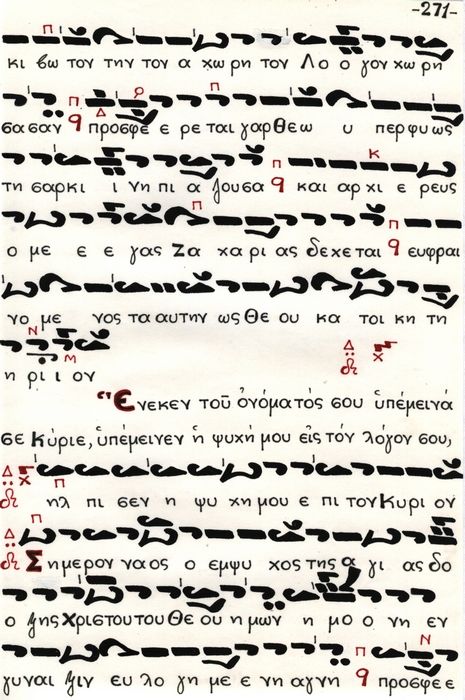 -271-
κι βω τον την τον α χω ρη τον Λο ο γον χω ρη
σα σαν q προσφε ε ρε ται γαρ Θε ω υ περ φυ ως
τη σαρκι ι νη πι α ζουσα q και αρ χι ε ρευς
ο με ε ε γας Ζα χα ρι ας δε χε ται q ευφραι
νο με νος τα αυτην ως Θε ου κα τοι κη τη
η ρι ι ον
Ἕνεκεν τοῦ ὀνόματός σου ὑπέμεινά
σε Κύριε, ὑπέμεινεν ἡ ψυχή μου εἰς τόν λόγον σου,
ηλ πι σεν η ψυ χη μου ε πι τον Κυρι ον
Σημερον ναος ο εμψυ χος της α γι ας δο
ο ξης Χριστου του Θε ου η μων η μο ο νη εν
γυναι ξιν ευ λο γη με ε νη αγνη q προσφε ε